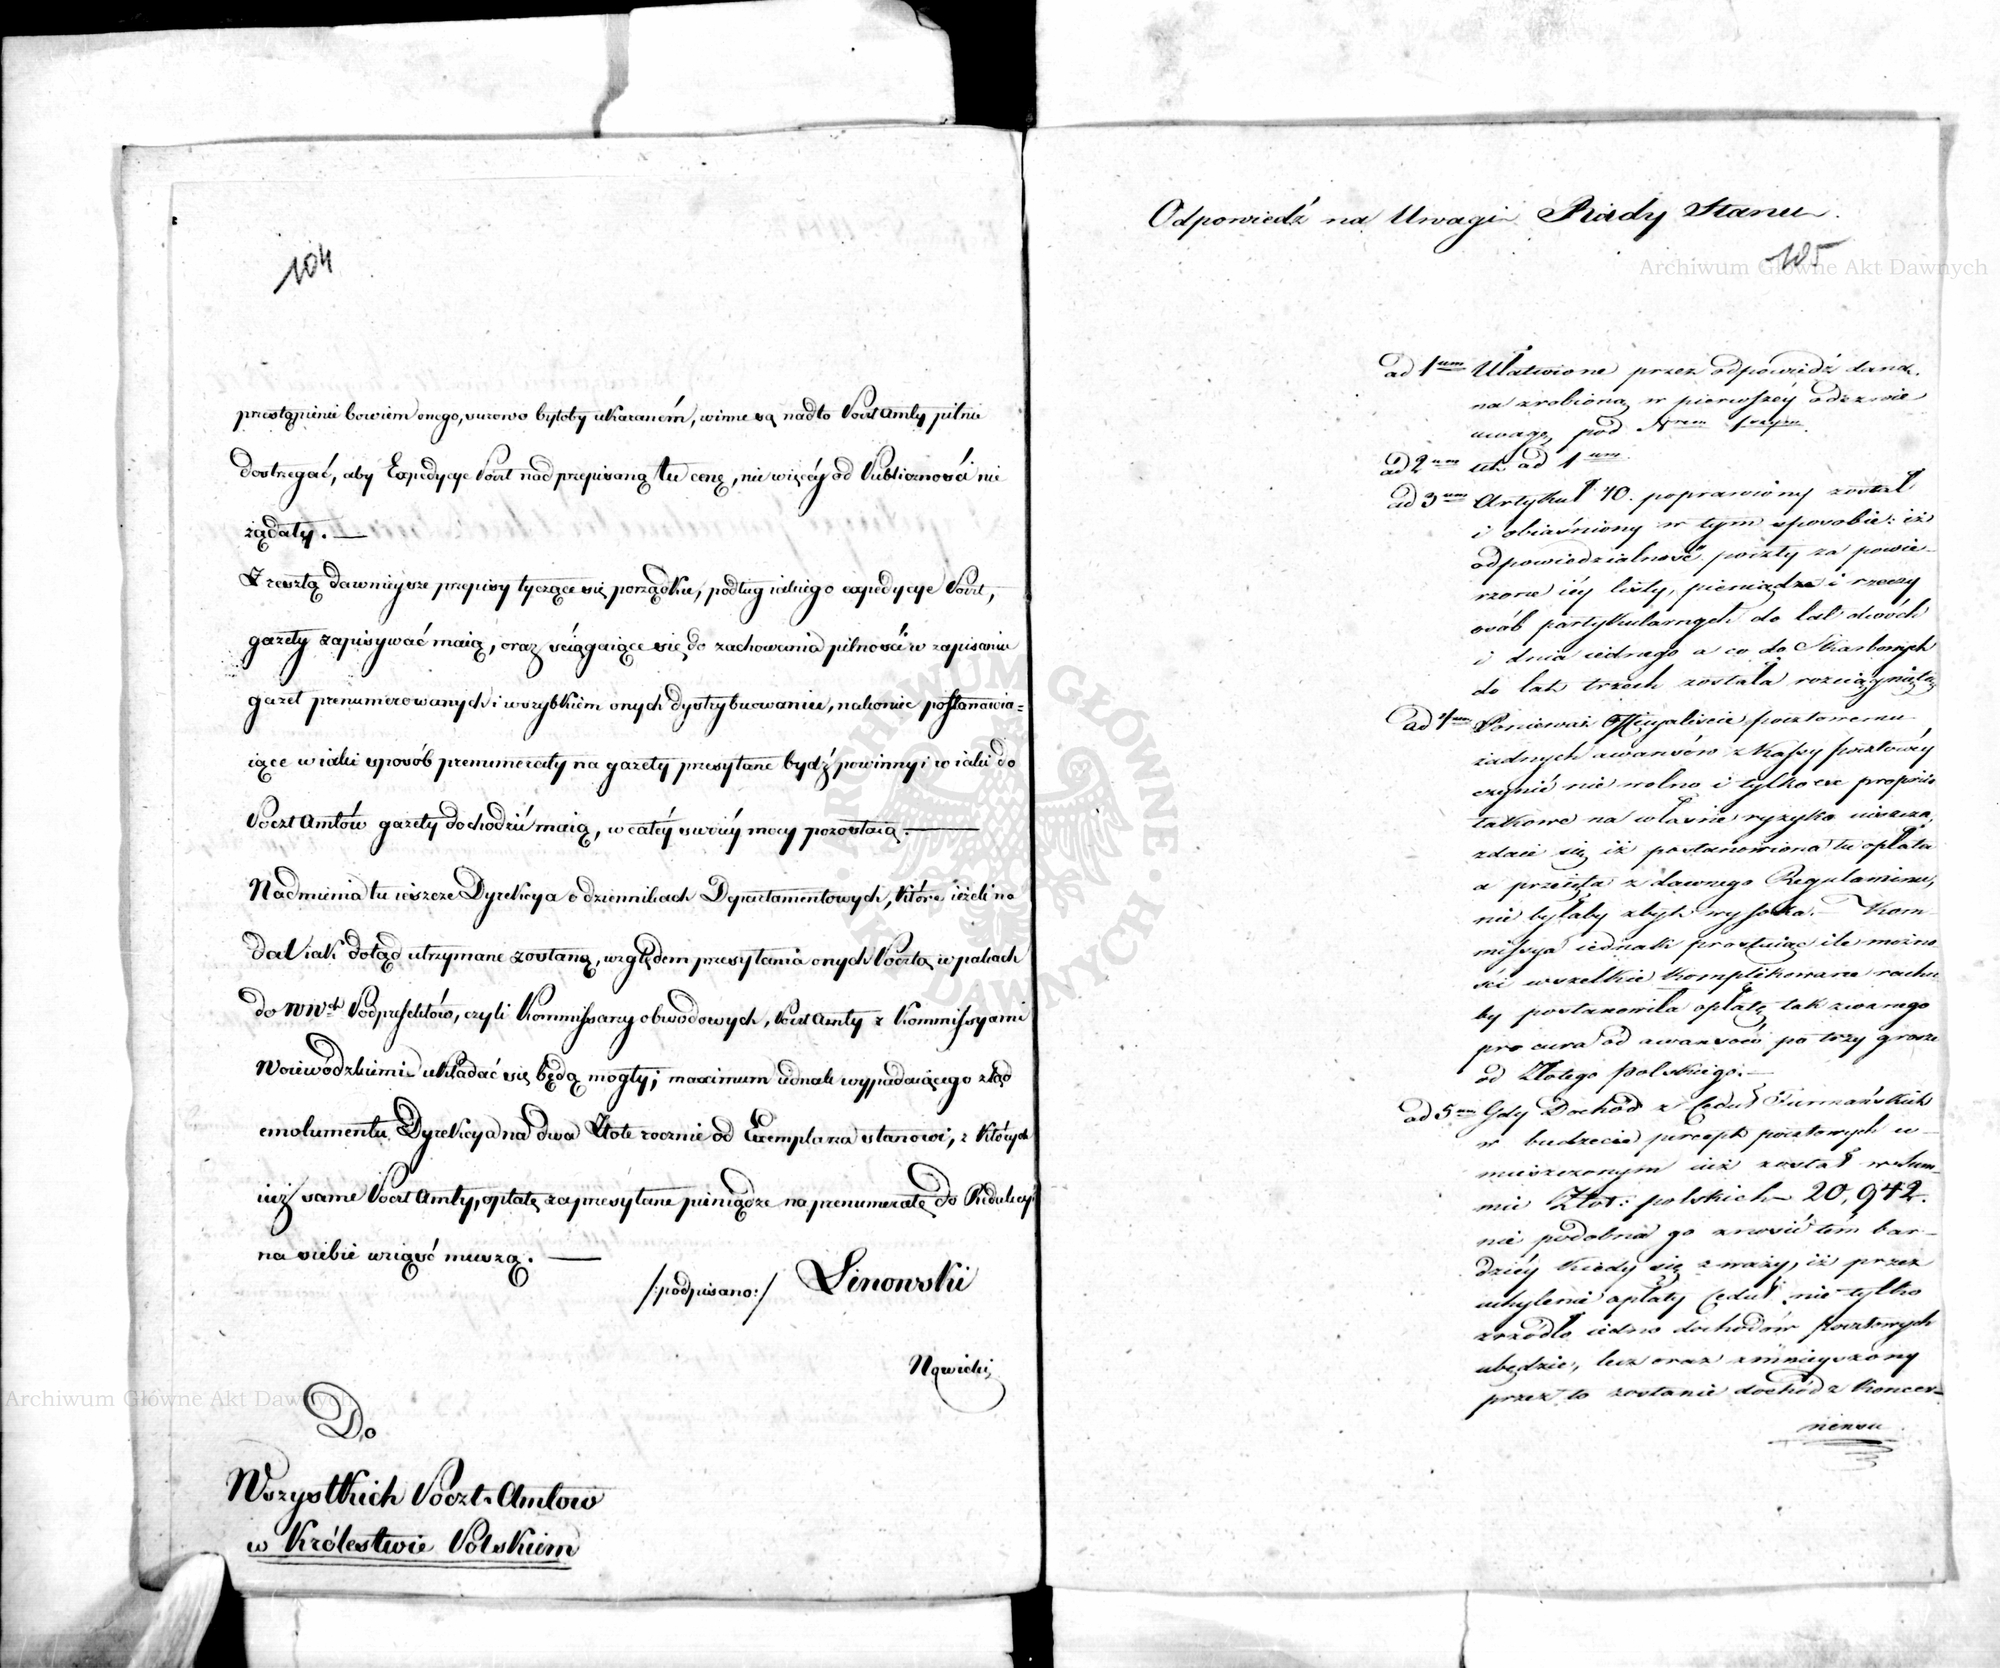 104
przestąpienie bowiem onego, surowo byłoby ukaraném, winne są nadto Poczt Amty pilnie
dostrzegać, aby Expedycye Poczt nad przepisaną tu cenę, nic więcéy od Publiczności nie
żądały. —
Z resztą dawnieysze przepisy tyczące się porządku, podług iakiego expedycye Poczt,
gazety zapisywać maią, oraz ściągaiące się do zachowania pilności w zapisaniu
gazet prenumerowanych i wszystkiém onych dystrybuowaniu, nakoniec postanawia=
iące w iaki sposób prenumeraty na gazety przesyłane bydź powinny i w iaki do
Poczt Amtów gazety dochodzić maią, w całéy swoiéy mocy pozostaią. —
Nadmienia tu ieszcze Dyrekcya o dziennikach Departamentowych, które ieżeli na
dal iak dotąd utrzymane zostaną, względem przesyłania onych Pocztą w pakach
do WWch Podprefektów, czyli Kommissarzy obwodowych, Poczt Amty z Kommissyami
Woiewódzkiemi układać się będą mogły; maximum iednak wypadaiącego ztąd
emolumentu Dyrekcya na dwa Złote rocznie od Exemplarza stanowi, z których
iuż same Poczt Amty, opłatę za przesyłane pieniądze na prenumeratę do Redakcyi
na siebie wziąść muszą. —
/:podpisano:/ Linowski
Nowicki
Do
Wszystkich Poczt-Amtow
w Królestwie Polskiem
Odpowiedź na Uwagi Rady Stanu.
105
ad 1um Ułatwione przez odpowiedź daną
na zrobioną w pierwszéy odezwie
uwagę pod Nrem 1szym.
ad 2um ut ad 1um.
ad 3um Artykuł 40. poprawiony został
i obiaśniony w tym sposobie: iż
odpowiedzialność poczty za powie-
rzone iéy listy, pieniądze i rzeczy
osób partykularnych do lat dwóch
i dnia iednego a co do Skarbowych
do lat trzech została rozciągniętą
ad 4um Ponieważ Officyaliście pocztowemu
żadnych awansów z Kassy pocztowéy
czynić nie wolno i tylko ex propriis
takowe na własne ryzyko uiszcza,
zdaie się iż postanowiona tu opłata
a przeięta z dawnego Regulaminu,
nie byłaby zbyt wysoka. — Kom-
missya iednak prostuiąc ile możno-
ści wszelkie komplikowane rachu-
by postanowiła opłatę tak zwanego
pro cura od awansów po trzy grosze
od Złotego polskiego. —
ad 5um Gdy Dochód z Ceduł Furmańskich
w budżecie percept pocztowych u-
mieszczonym iuż został w Sum-
mie Złot: polskich 20,942.
nie podobna go znosić tém bar-
dziéy kiedy się zważy, iż przez
uchylenie opłaty Ceduł nie tylko
zrzódło iedno dochodów pocztowych
ubędzie, lecz oraz zmnieyszony
przez to zostanie dochód z Koncen-
Archiwum Główne Akt Dawnych
Archiwum Główne Akt Dawnych
ARCHIWUM GŁÓWNE
AKT DAWNYCH